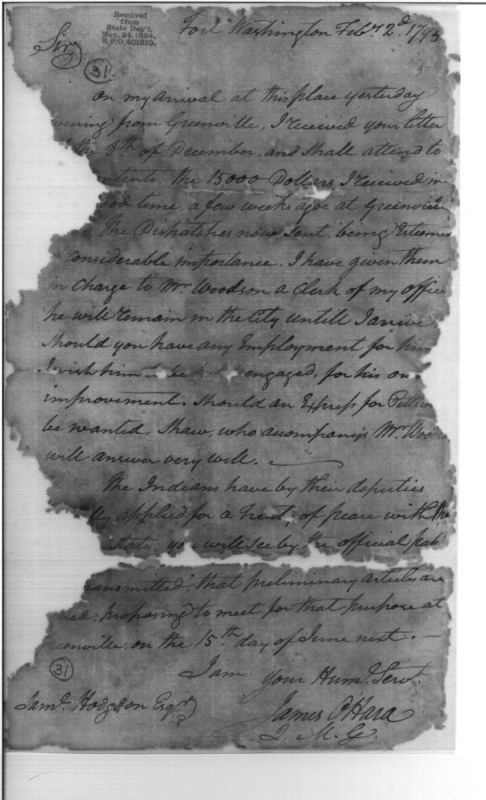 Received
from
State Dep't.
Nov. 24, 1894.
R.P.O. 401810.
Fort Washington Feby. 2d. 1795
Sir,
31
On my arrival at this place yesterday
evening from Greenville, I received your letter
the 8th of December, and shall attend to
contents, the 15000 Dollars I received in
good time, a few weeks ago at Greenville
The Dispatches now sent, being Esteemed
considerable importance, I have given them
in Charge to Mr. Woodson a Clerk of my office
he will remain in the City untill I arrive
Should you have any Employment for him
I wish him to be engaged, for his own
improvement. Should an Express for
be wanted, Shaw, who accompanys Mr.
will answer very well.
The Indians have by their deputies
applied for a Treaty of peace with the
States, you will see by the official
transmitted, that preliminary articles are
signed, proposing to meet for that purpose at
Greenville, on the 15th day of June next.
I am your Humle. Servt.
31
James O'Hara
Q. M. G.
Saml. Hodgson Esqr.